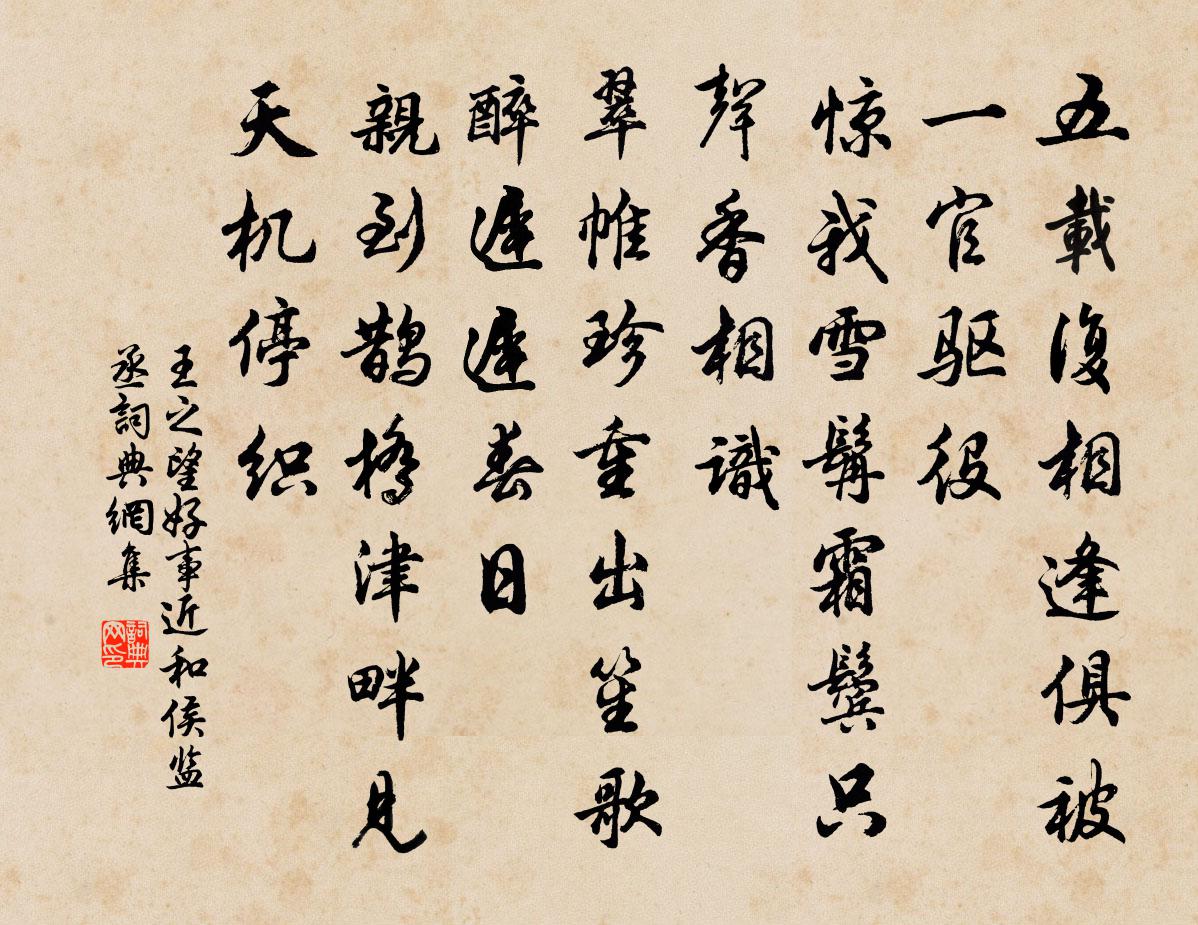 五載復相逢俱被
一官驱役
惊我雪髯霜鬓只
聲香相識
翠帷珍重出笙歌
醉遲遲春日
親到鹊橋津畔見
天机停织
王之望好事近和侯监
丞詞典網集
詞典网印